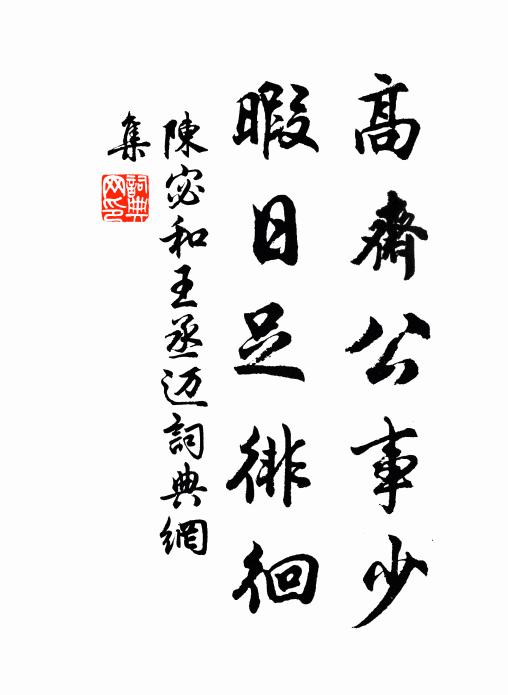 高齋公事少
暇日足徘徊
陳宓和王丞迈詞典網
集
詞典
网印